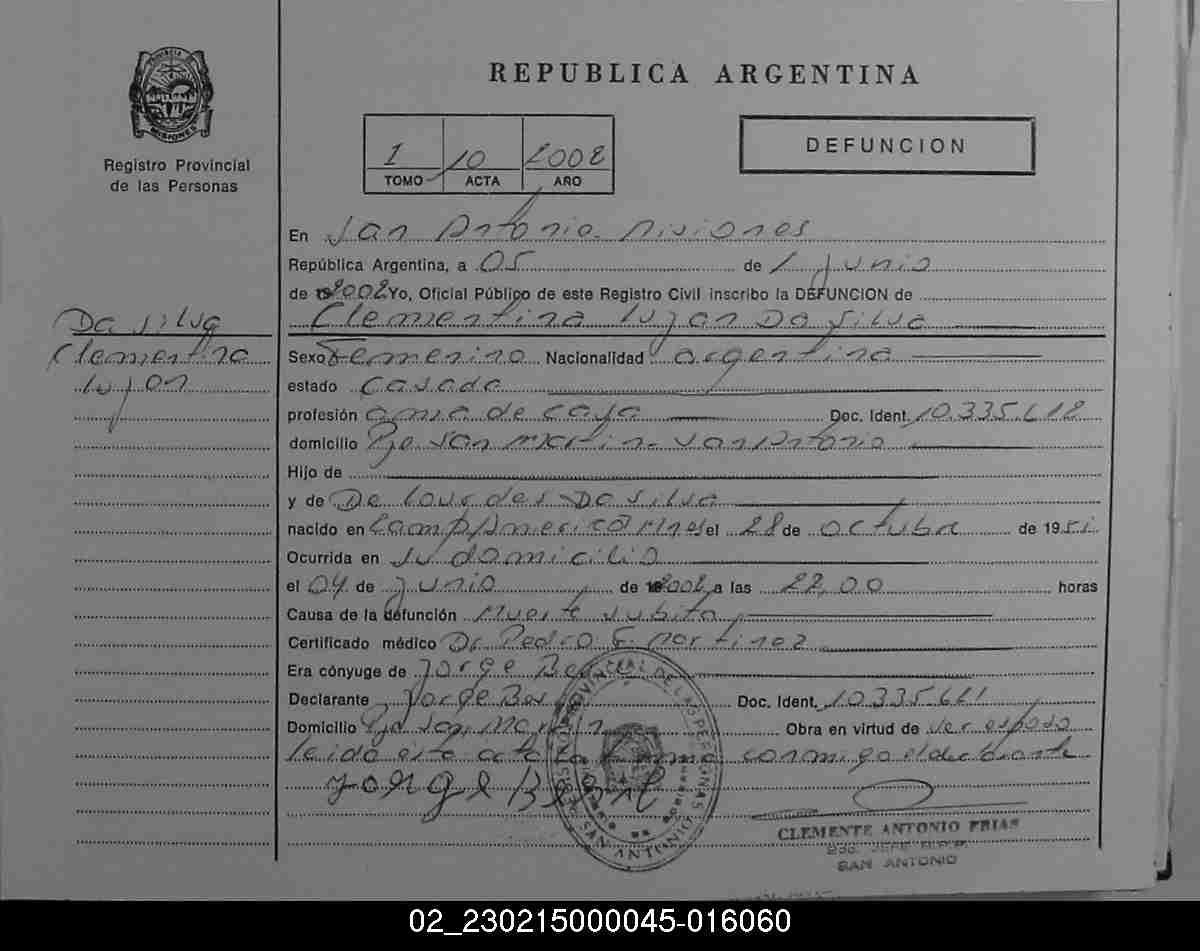 REPUBLICA ARGENTINA
PROVINCIA DE MISIONES
Registro Provincial
de las Personas
1 10 2002
TOMO ACTA AÑO
DEFUNCION
En San Antonio Misiones
República Argentina, a 05 de junio
de 2002 Yo, Oficial Público de este Registro Civil inscribo la DEFUNCION de
Clementina Lujan Da Silva
Da Silva
Clementina
Lujan
Sexo Femenino Nacionalidad argentina
estado casada
profesión ama de casa Doc. Ident. 10.335.618
domicilio Pje San Martin - San Antonio
Hijo de
y de De Lourdes Da Silva
nacido en Camp. Americo Mnes el 28 de octubre de 1951
Ocurrida en su domicilio
el 04 de junio de 2002 a las 22,00 horas
Causa de la defunción Muerte subita
Certificado médico Dr. Pedro F. Martinez
Era cónyuge de Jorge
Declarante Jorge Doc. Ident. 10.335.611
Domicilio Pje San Martin Obra en virtud de ser esposo
leido este acta la conmigo el declarante
Jorge
REGISTRO PROVINCIAL DE LAS PERSONAS
SAN ANTONIO
CLEMENTE ANTONIO FRIAS
JEFE R.P.P.
SAN ANTONIO
02_230215000045-016060